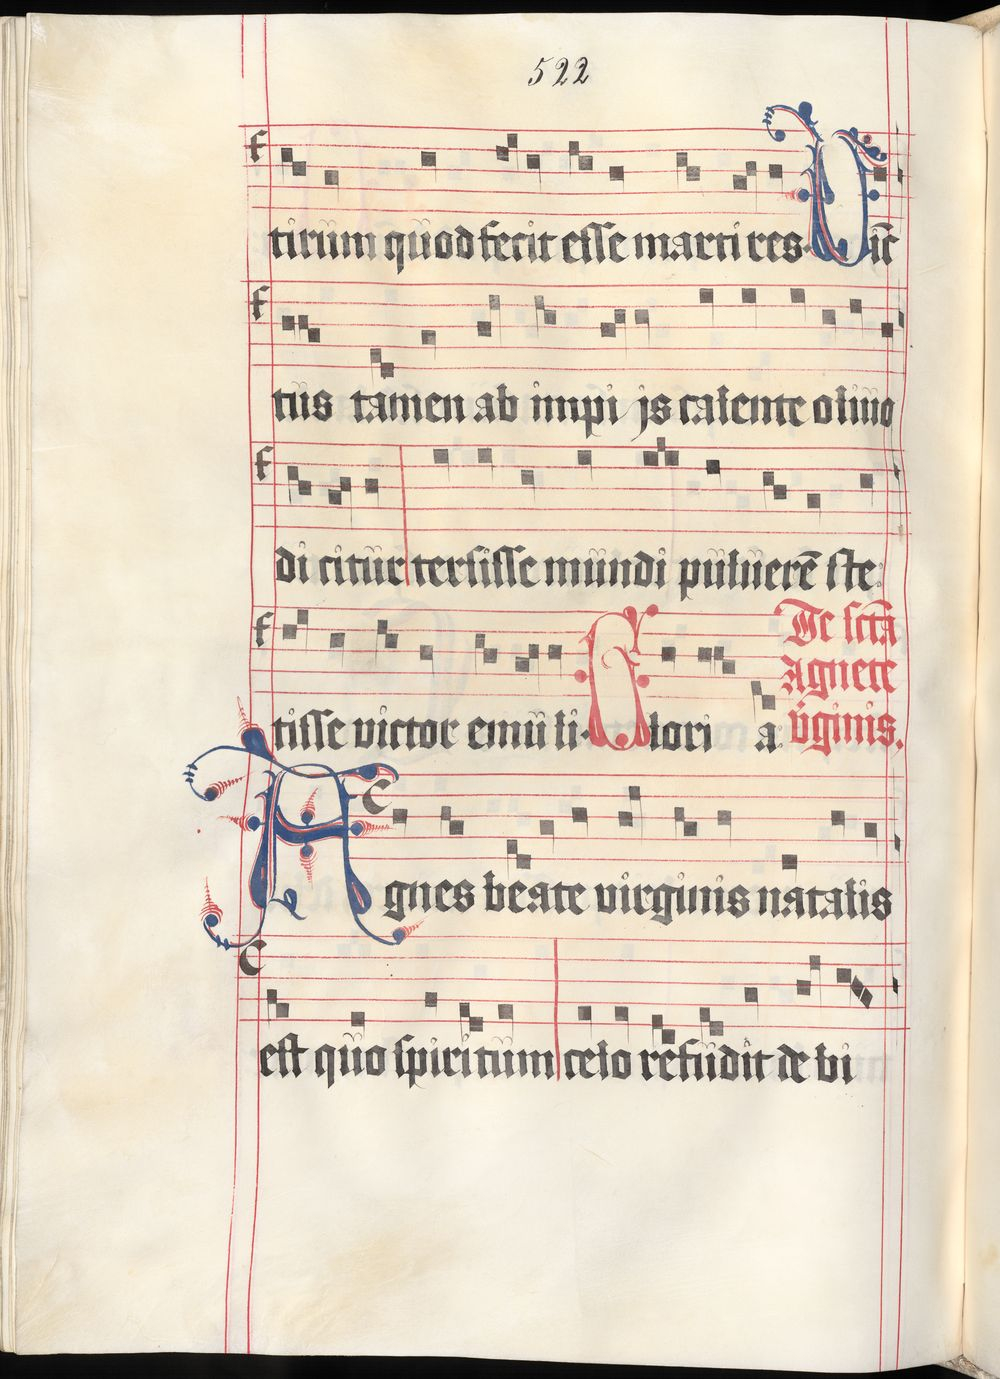 522
tirum quod fecit esse martires. Vic
tus tamen ab impi js calente olivo
di citur tersisse mundi pulverē ste
tisse victor emu li. Glori a. De sctā
Agnete
v̄ginis.
Agnes beate virginis natalis
est quo spiri tum celo refudit de bi